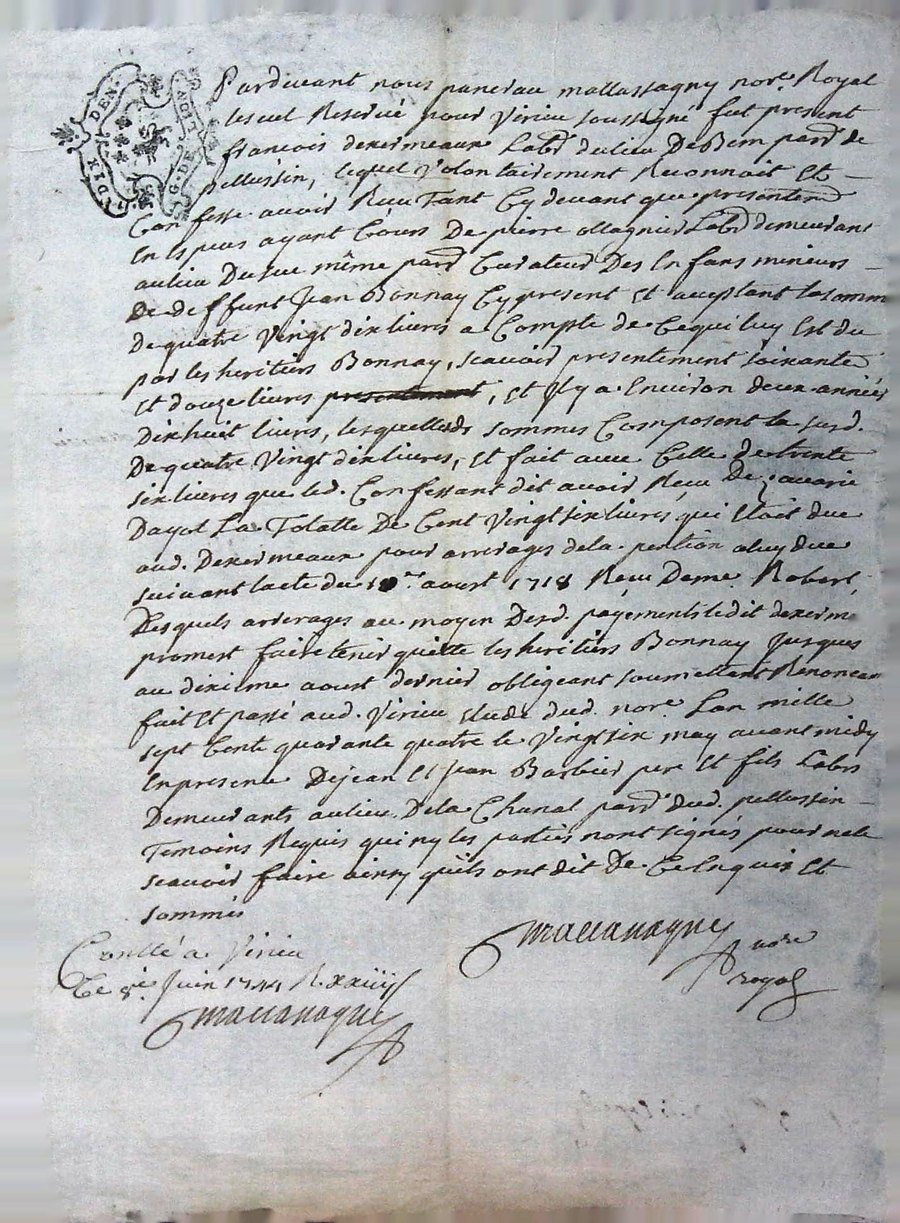 SIX DEN.
G. DE AGIT
Pardevant nous pancrau mallassagny nore. Royal
le seul Reservé pour Virieu soussigné fut present
francois dexermeaux Labr. du lieu De Bem parr. de
pellussin, lequel Volontairement Reconnoit Et
Confesse avoir Reçu Tant Cy devant que presentemt.
En Espuces ayant Cours De pierre ollagnier Labr. demeurant
au lieu Du sue même parr. Curateur Des Enfans mineurs
De deffunt Jean Bonnay Cy present Et acceptant la somme
De quatre Vingt dix livres a Compte de Ce qui luy Est du
par les heritiers Bonnay, scavoir presentement soixante
Et douze livres presentement, Et Il y a Environ deux années
Dixhuit livres, lesquelles sommes Composent la susd.
De quatre Vingt dix livres, Et fait avec Celle de trente
six livres que led. Confessant dit avoir Reçu De
Dayot La Totalle De Cent Vingt six livres qui Etoit due
aud. Dexermeaux pour arrerages de la pention a luy due
suivant lacte du 10me. aoust 1718 Reçu Deme. Robert,
Desquels arrerages au moyen Desd. payements ledit dexerme
promest faire tenir quitte les heritiers Bonnay Jusques
au dixieme aoust dernier obligeant soumettant Renoncant
fait Et passé aud. Virieu Etude dud. nore. Lan mille
sept Cent quarante quatre le Vingt six may avant midy
En presence De jean Et Jean Barbier per Et fils Labrs
Demeurants au lieu De la Chanal parr. dud. pellussin
Temoins Requis qui ny les parties nont signés pour ne le
scavoir faire ainsy quils ont dit De Ce Enquis Et
sommés
Conllé a Virieu
Ce 8e. Juin 1744 R. xxiiijs
nore
royal